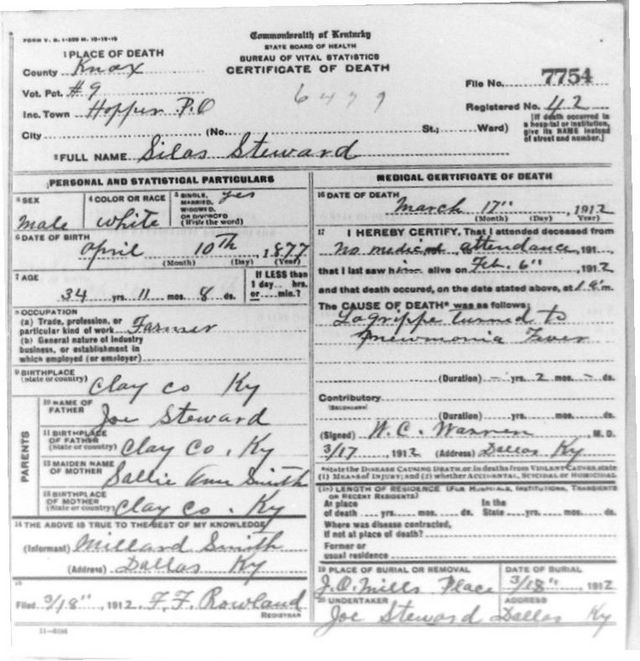 FORM V. S. 1-
Commonwealth of Kentucky
STATE BOARD OF HEALTH
BUREAU OF VITAL STATISTICS
CERTIFICATE OF DEATH
1 PLACE OF DEATH
County Knox
Vot. Pct. #9
Inc. Town Hopper P.O
6479
File No. 7754
Registered No. 42
City (No. St.; Ward)
[If death occurred in a hospital or institution, give its NAME instead of street and number.]
2 FULL NAME Silas Steward
PERSONAL AND STATISTICAL PARTICULARS
3 SEX
male
4 COLOR OR RACE
white
5 SINGLE, MARRIED, WIDOWED, OR DIVORCED (Write the word) yes
6 DATE OF BIRTH
april 10th, 1877
(Month) (Day) (Year)
7 AGE
34 yrs. 11 mos. 8 ds.
If LESS than 1 day... hrs. or... min.?
8 OCCUPATION
(a) Trade, profession, or particular kind of work Farmer
(b) General nature of industry business, or establishment in which employed (or employer)
9 BIRTHPLACE
(State or country) Clay co Ky
PARENTS
10 NAME OF FATHER Joe Steward
11 BIRTHPLACE OF FATHER (State or country) Clay Co. Ky
12 MAIDEN NAME OF MOTHER Sallie Ann Smith
13 BIRTHPLACE OF MOTHER (State or country) Clay co. Ky
14 THE ABOVE IS TRUE TO THE BEST OF MY KNOWLEDGE
(Informant) Millard Smith
(Address) Dallas Ky
15
Filed 3/18", 1912 F. F. Rowland
REGISTRAR
MEDICAL CERTIFICATE OF DEATH
16 DATE OF DEATH
March 17", 1912
(Month) (Day) (Year)
17 I HEREBY CERTIFY, That I attended deceased from
No medical attendance, 191
that I last saw him alive on Feb. 6", 1912
and that death occured, on the date stated above, at m.
The CAUSE OF DEATH* was as follows:
Lagrippe turned to
Pneumonia Fever
(Duration) – yrs. 2 mos. – ds.
Contributory
(SECONDARY)
(Duration) yrs. mos. ds.
(Signed) W. C. Warren M. D.
3/17, 1912 (Address) Dallas Ky
*State the DISEASE CAUSING DEATH, or, in deaths from VIOLENT CAUSES, state (1) MEANS OF INJURY; and (2) whether ACCIDENTAL, SUICIDAL OR HOMICIDAL
18 LENGTH OF RESIDENCE (FOR HOSPITALS, INSTITUTIONS, TRANSIENTS OR RECENT RESIDENTS)
At place of death yrs. mos. ds. In the State yrs. mos. ds.
Where was disease contracted, if not at place of death?
Former or usual residence
19 PLACE OF BURIAL OR REMOVAL
J. O. Mills Place
DATE OF BURIAL
3/18", 1912
20 UNDERTAKER
Joe Steward
ADDRESS
Dallas Ky